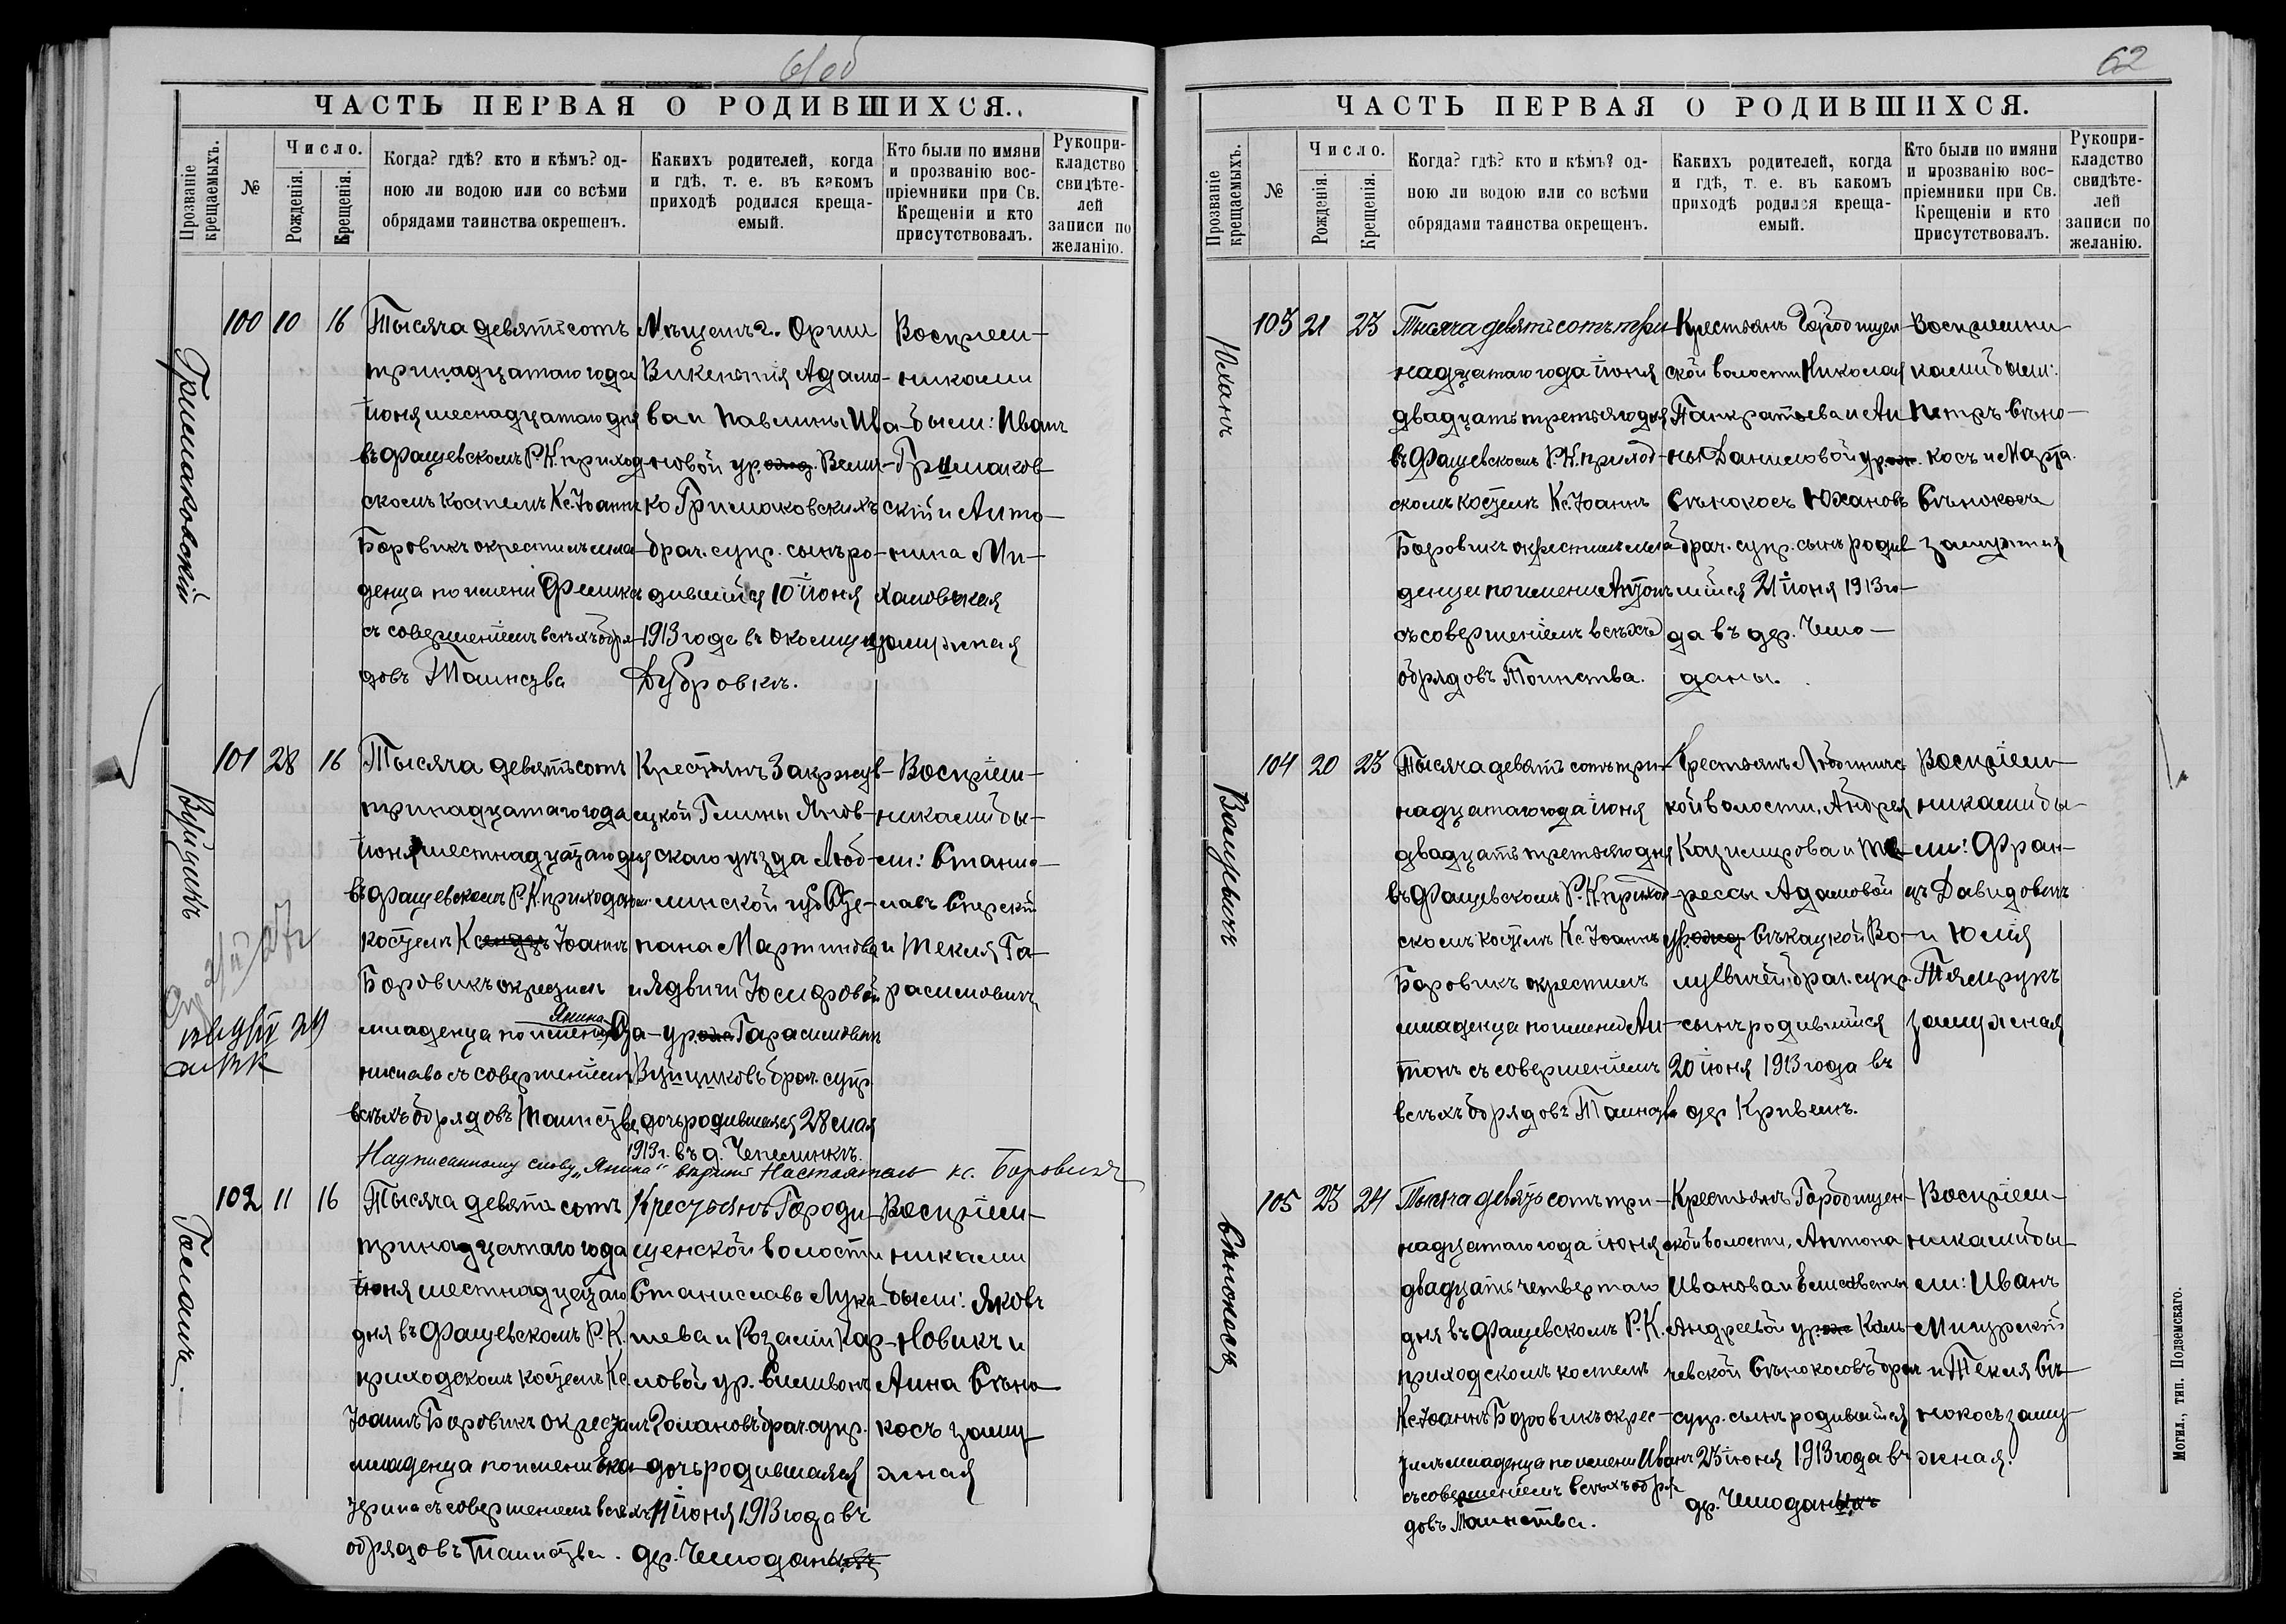 61 об
ЧАСТЬ ПЕРВАЯ О РОДИВШИХСЯ.
Прозваніе крещаемыхъ.
№
Число.
Рожденія.
Крещенія.
Когда? гдѣ? кто и кѣмъ? од-
ною ли водою или со всѣми
обрядами таинства окрещенъ.
Какихъ родителей, когда
и гдѣ, т. е. въ какомъ
приходѣ родился креща-
емый.
Кто были по имяни
и прозванію вос-
пріемники при Св.
Крещеніи и кто
присутствовалъ.
Рукопри-
кладство
свидѣте-
лей
записи по
желанію.
Гримаковскій
100 10 16
Тысяча девятьсотъ
тринадцатаго года
іюня шеснадцатаго дня
въ Фащевскомъ Р. К. приход-
скомъ костелѣ Кс. Іоаннъ
Боровикъ окрестилъ мла-
денца по имени Феликсъ
съ совершеніемъ всѣхъ обря-
довъ Таинства
Мѣщанъ г. Орши
Викентія Адамо-
ва и Павлины Ива-
новой ур. Велич-
ко Гримаковскихъ
брач. супр. сынъ ро-
дившійся 10 іюня
1913 года въ околицѣ
Дубровкѣ.
Воспріем-
никами
были: Иванъ
Гримаков-
скій и Анто-
нина Ми-
халовская
замужняя
Вуйцикъ
101 28 16
Тысяча девятьсотъ
тринадцатаго года
іюня шестнадцатаго дня
въ Фащевскомъ Р. К. приходскомъ
костелѣ Ксендзъ Іоаннъ
Боровикъ окрестилъ
младенца по имени Янина Ста-
нислава съ совершеніемъ
всѣхъ обрядовъ Таинства
Крестьянъ Закржув-
ецкой Гмины Янов-
скаго уѣзда Люб-
линской губ. Сте-
пана Мартинова
и Ядвиги Іосифовой
ур. Гарасимовичъ
Вуйциковъ брач. супр.
дочь родившаяся 28 мая
1913 г. въ д. Чепелинкѣ.
Воспріем-
никами бы-
ли: Стани-
славъ Сперскій
и Текля Га-
расимовичъ
Надписанному слову „Янина" вѣрить Настоятель кс. Боровикъ
Головачъ.
102 11 16
Тысяча девятьсотъ
тринадцатаго года
іюня шестнадцатаго
дня въ Фащевскомъ Р. К.
приходскомъ костелѣ Кс.
Іоаннъ Боровикъ окрестилъ
младенца по имени Ека-
терина съ совершеніемъ всѣхъ
обрядовъ Таинства.
Крестьянъ Городи-
щенской волости
Станислава Лука-
шева и Розаліи Кар-
ловой ур. Симвонъ
брач. супр.
дочь родившаяся
11 іюня 1913 года въ
дер. Чемоданы
Воспріем-
никами
были: Яковъ
Новикъ и
Анна Сѣно-
косъ заму-
жняя
62
ЧАСТЬ ПЕРВАЯ О РОДИВШИХСЯ.
Прозваніе крещаемыхъ.
№
Число.
Рожденія.
Крещенія.
Когда? гдѣ? кто и кѣмъ? од-
ною ли водою или со всѣми
обрядами таинства окрещенъ.
Какихъ родителей, когда
и гдѣ, т. е. въ какомъ
приходѣ родился креща-
емый.
Кто были по имяни
и прозванію вос-
пріемники при Св.
Крещеніи и кто
присутствовалъ.
Рукопри-
кладство
свидѣте-
лей
записи по
желанію.
Юханъ
103 21 23
Тысяча девятьсотъ три-
надцатаго года іюня
двадцать третьяго дня
въ Фащевскомъ Р. К. приход-
скомъ костелѣ Кс. Іоаннъ
Боровикъ окрестилъ мла-
денца по имени Антонъ
съ совершеніемъ всѣхъ
обрядовъ Таинства.
Крестьянъ Городищен-
ской волости Николая
Панкратьева и Ан-
ны Даниловой ур.
Сѣнокосъ Юхановъ
брач. супр. сынъ родив-
шійся 21 іюня 1913 го-
да въ дер. Чемо-
даны.
Воспріемни-
ками были:
Петръ Сѣно-
косъ и Марта
Сѣнокосъ
замужняя
104 20 23
Тысяча девятьсотъ три-
надцатаго года іюня
двадцать третьяго дня
въ Фащевскомъ Р. К. приход-
скомъ костелѣ Кс. Іоаннъ
Боровикъ окрестилъ
младенца по имени Ан-
тонъ съ совершеніемъ
всѣхъ обрядовъ Таинства
Крестьянъ Любинич-
ской волости, Андрея
Казимирова и Те-
рессы Адамовой
брач. супр.
сынъ родившійся
20 іюня 1913 года въ
дер. Кривель.
Воспріем-
никами бы-
ли: Фран-
цъ Давидовичъ
и Юлія
Тямрукъ
замужняя
Сѣнокосъ
105 23 24
Тысяча девятьсотъ три-
надцатаго года іюня
двадцать четвертаго
дня въ Фащевскомъ Р. К.
приходскомъ костелѣ
Кс. Іоаннъ Боровикъ окрес-
тилъ младенца по имени Иванъ
съ совершеніемъ всѣхъ обря-
довъ Таинства.
Крестьянъ Городищен-
ской волости, Антона
Иванова и Елисаветы
Андреевой ур. Каль-
чевской Сѣнокосовъ брач.
супр. сынъ родившійся
23 іюня 1913 года въ
др. Чемоданы
Воспріем-
никами бы-
ли: Иванъ
Мигурскій
и Текля Сѣ-
нокосъ заму-
жняя.
Могил., тип. Подземскаго.